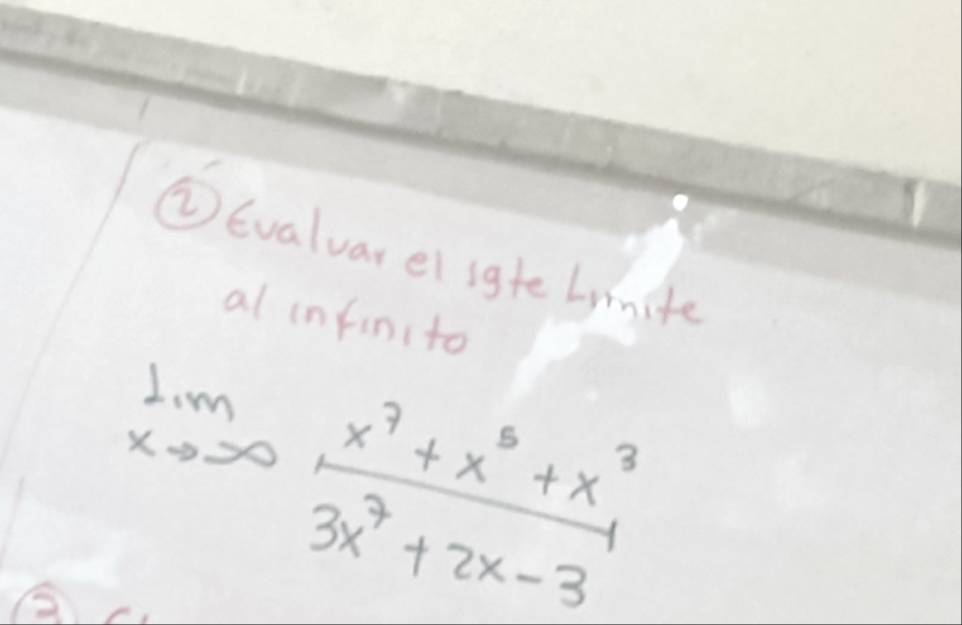 ② Evaluar el igte Limite
al infinito
lim x→∞ (x⁷ + x⁵ + x³) / (3x⁷ + 2x - 3)
③